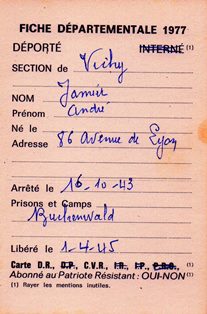 FICHE DÉPARTEMENTALE 1977
DÉPORTÉ INTERNÉ (1)
SECTION de Vichy
NOM Jamet
Prénom André
Né le
Adresse 86 Avenue de Lyon
Arrêté le 16-10-43
Prisons et Camps
Buchenwald
Libéré le 1-4-45
Carte D.R., D.P., C.V.R., I.R., I.P., P.R.O., (1)
Abonné au Patriote Résistant : OUI-NON (1)
(1) Rayer les mentions inutiles.